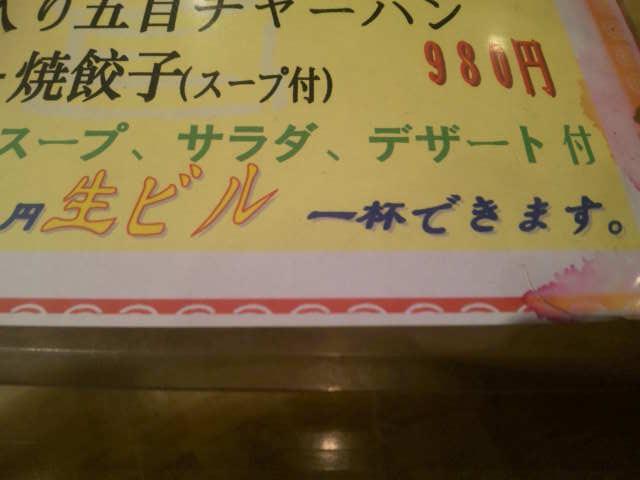 入り五目チャーハン
焼餃子(スープ付) 980円
スープ、サラダ、デザート付
円生ビル 一杯できます。